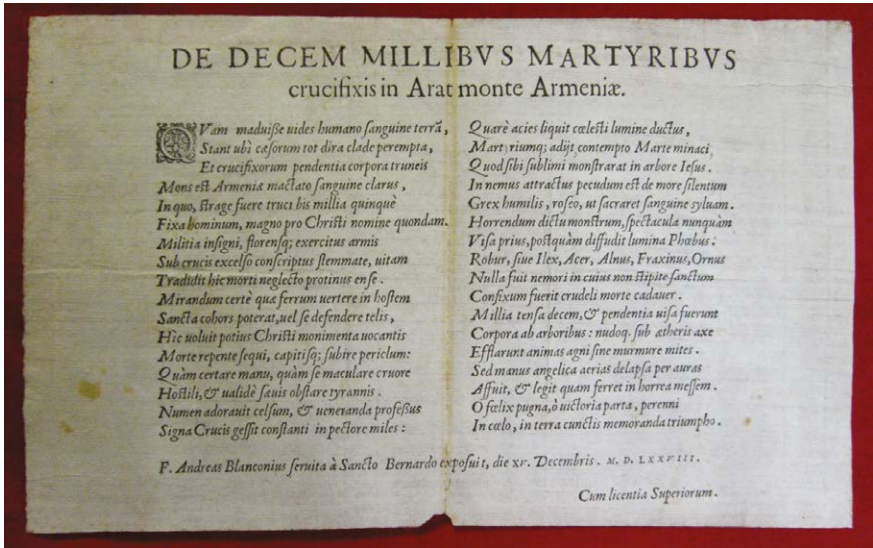 DE DECEM MILLIBVS MARTYRIBVS
crucifixis in Arat monte Armeniæ.
QVam maduiſſe uides humano ſanguine terrã,
Stant ubi cæſorum tot dira clade perempta,
Et crucifixorum pendentia corpora truncis
Mons eſt Armeniæ mactato ſanguine clarus,
In quo, ſtrage fuere truci bis millia quinquè
Fixa hominum, magno pro Chriſti nomine quondam.
Militia inſigni, florenſq; exercitus armis
Sub crucis excelſo conſcriptus ſtemmate, uitam
Tradidit hic morti neglecto protinus enſe.
Mirandum certè quæ ferrum uertere in hoſtem
Sancta cohors poterat, uel ſe defendere telis,
Hic uoluit potius Chriſti monimenta uocantis
Morte repente ſequi, capitiſq; ſubire periclum:
Quàm certare manu, quàm ſe maculare cruore
Hoſtili, & ualidè ſæuis obſtare tyrannis.
Numen adorauit celſum, & ueneranda profeſſus
Signa Crucis geſſit conſtanti in pectore miles:
Quarè acies liquit cœleſti lumine ductus,
Martyriumq; adijt contempto Marte minaci,
Quod ſibi ſublimi monſtrarat in arbore Ieſus.
In nemus attractus pecudum eſt de more ſilentum
Grex humilis, roſeo, ut ſacraret ſanguine ſyluam.
Horrendum dictu monſtrum, ſpectacula nunquàm
Viſa prius, poſtquàm diffudit lumina Phœbus.
Robur, ſiue Ilex, Acer, Alnus, Fraxinus, Ornus
Nulla fuit nemori in cuius non ſtipite ſanctum
Confixum fuerit crudeli morte cadauer.
Millia tenſa decem, & pendentia uiſa fuerunt
Corpora ab arboribus: nudoq. ſub ætheris axe
Efflarunt animas agni ſine murmure mites.
Sed manus angelica aerias delapſa per auras
Affuit, & legit quam ferret in horrea meſſem.
O fœlix pugna, ò uictoria parta, perenni
In cœlo, in terra cunctis memoranda triumpho.
F. Andreas Blanconius ſeruita à Sancto Bernardo expoſuit, die xv. Decembris. M. D. LXXVIII.
Cum licentia Superiorum.